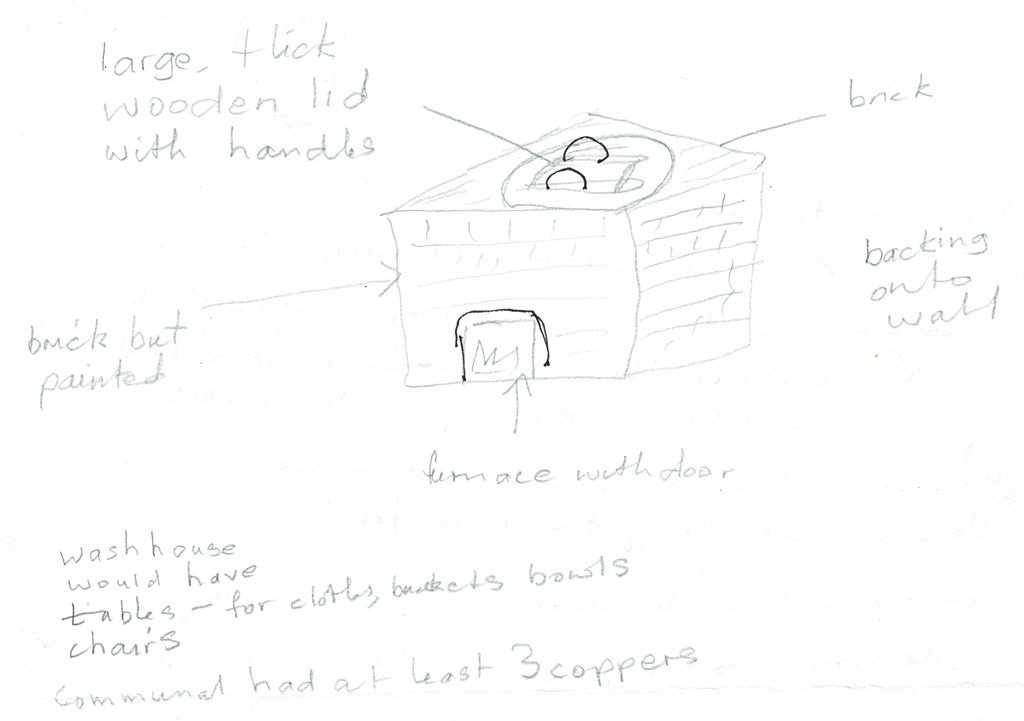 large, thick
wooden lid
with handles
brick
backing
onto
wall
brick but
painted
furnace with door
wash house
would have
tables - for clothes, buckets bowls
chairs
communal had at least 3 coppers